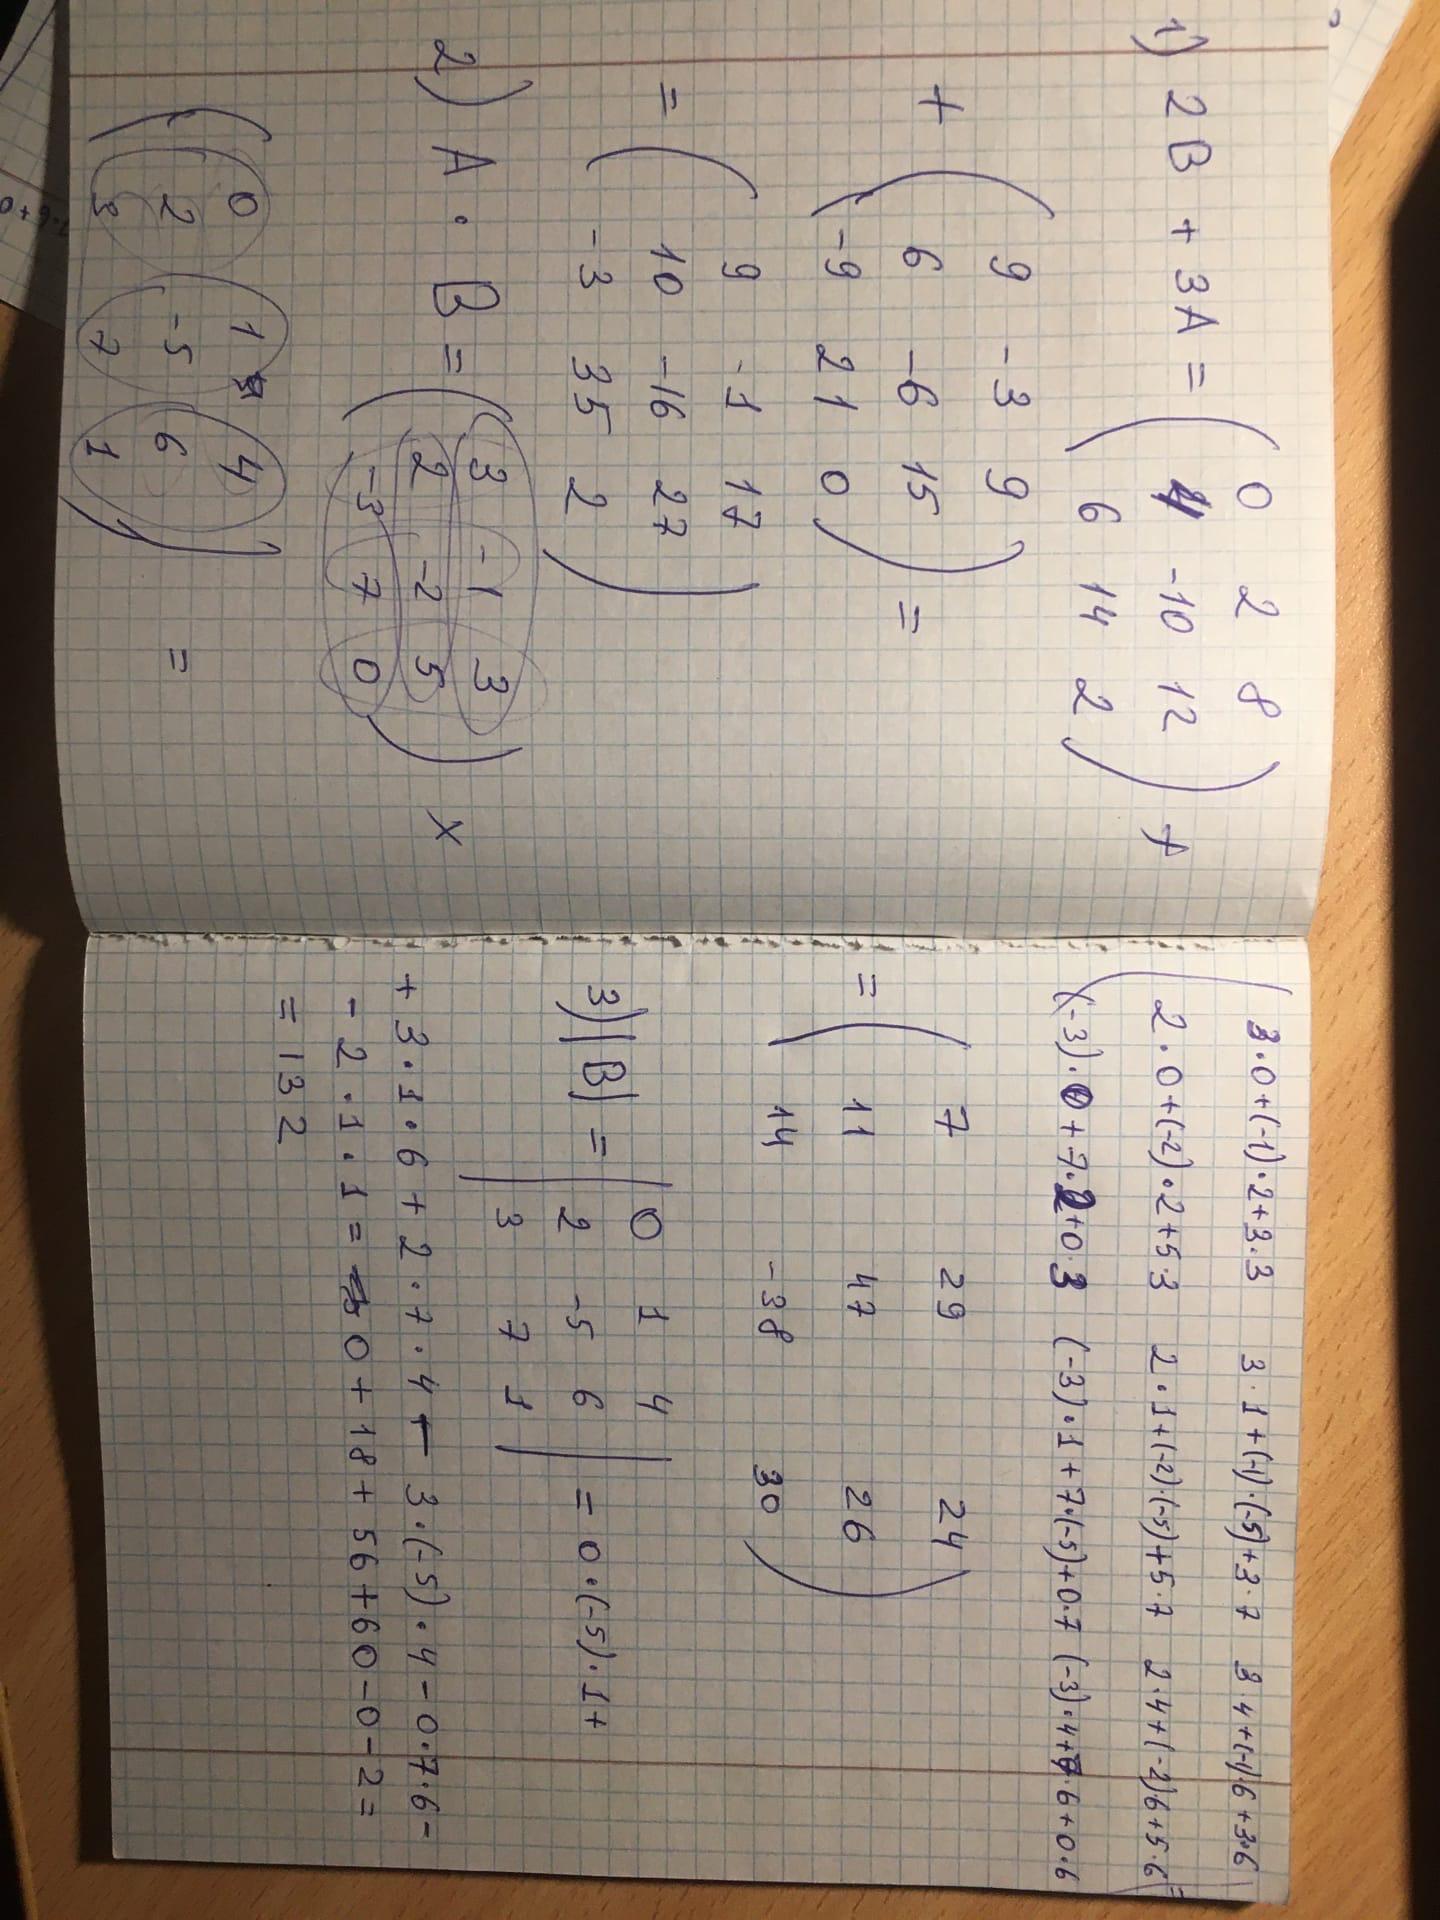 1) 2B + 3A =
( 0 2 8
4 -10 12
6 14 2 ) +
+ ( 9 -3 9
6 -6 15
-9 21 0 ) =
= ( 9 -1 17
10 -16 27
-3 35 2 )
2) A · B =
( 3 -1 3
2 -2 5
-3 7 0 ) x
( 0 1 4
2 -5 6
3 7 1 ) =
( 3·0+(-1)·2+3·3 3·1+(-1)·(-5)+3·7 3·4+(-1)6+3·6
2·0+(-2)·2+5·3 2·1+(-2)·(-5)+5·7 2·4+(-2)6+5·6 ) =
(-3)·0+7·2+0·3 (-3)·1+7·(-5)+0·7 (-3)·4+7·6+0·6
= ( 7 29 24
11 47 26
14 -38 30 )
3) |B| =
| 0 1 4
2 -5 6
3 7 1 | = 0·(-5)·1+
+ 3·1·6+2·7·4 - 3·(-5)·4-0·7·6-
- 2·1·1= 0+18+56+60-0-2=
= 132